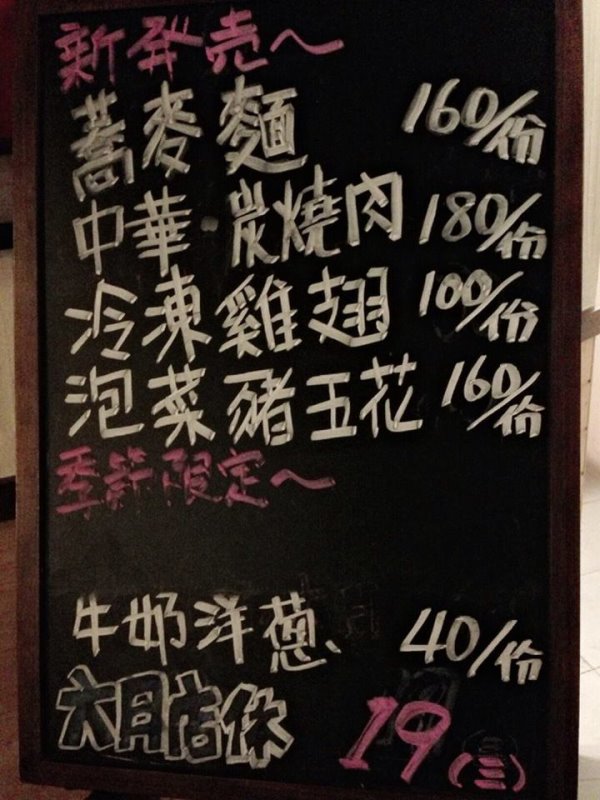 新発売～
蕎麥麵 160/份
中華·炭燒肉 180/份
冷凍雞翅 100/份
泡菜豬五花 160/份
季節限定～
牛奶洋蔥、 40/份
六月店休 19(三)